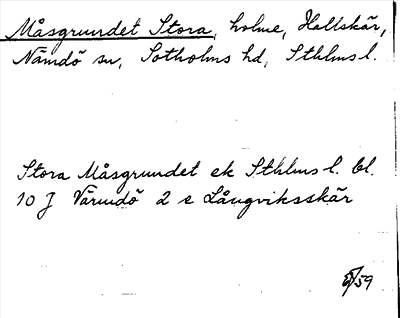 Måsgrundet Stora, holme, Hallskär,
Nämdö sn, Sotholms hd, Sthlms l.
Stora Måsgrundet ek Sthlms l. bl.
10 J Värmdö 2 e Långviksskär
59